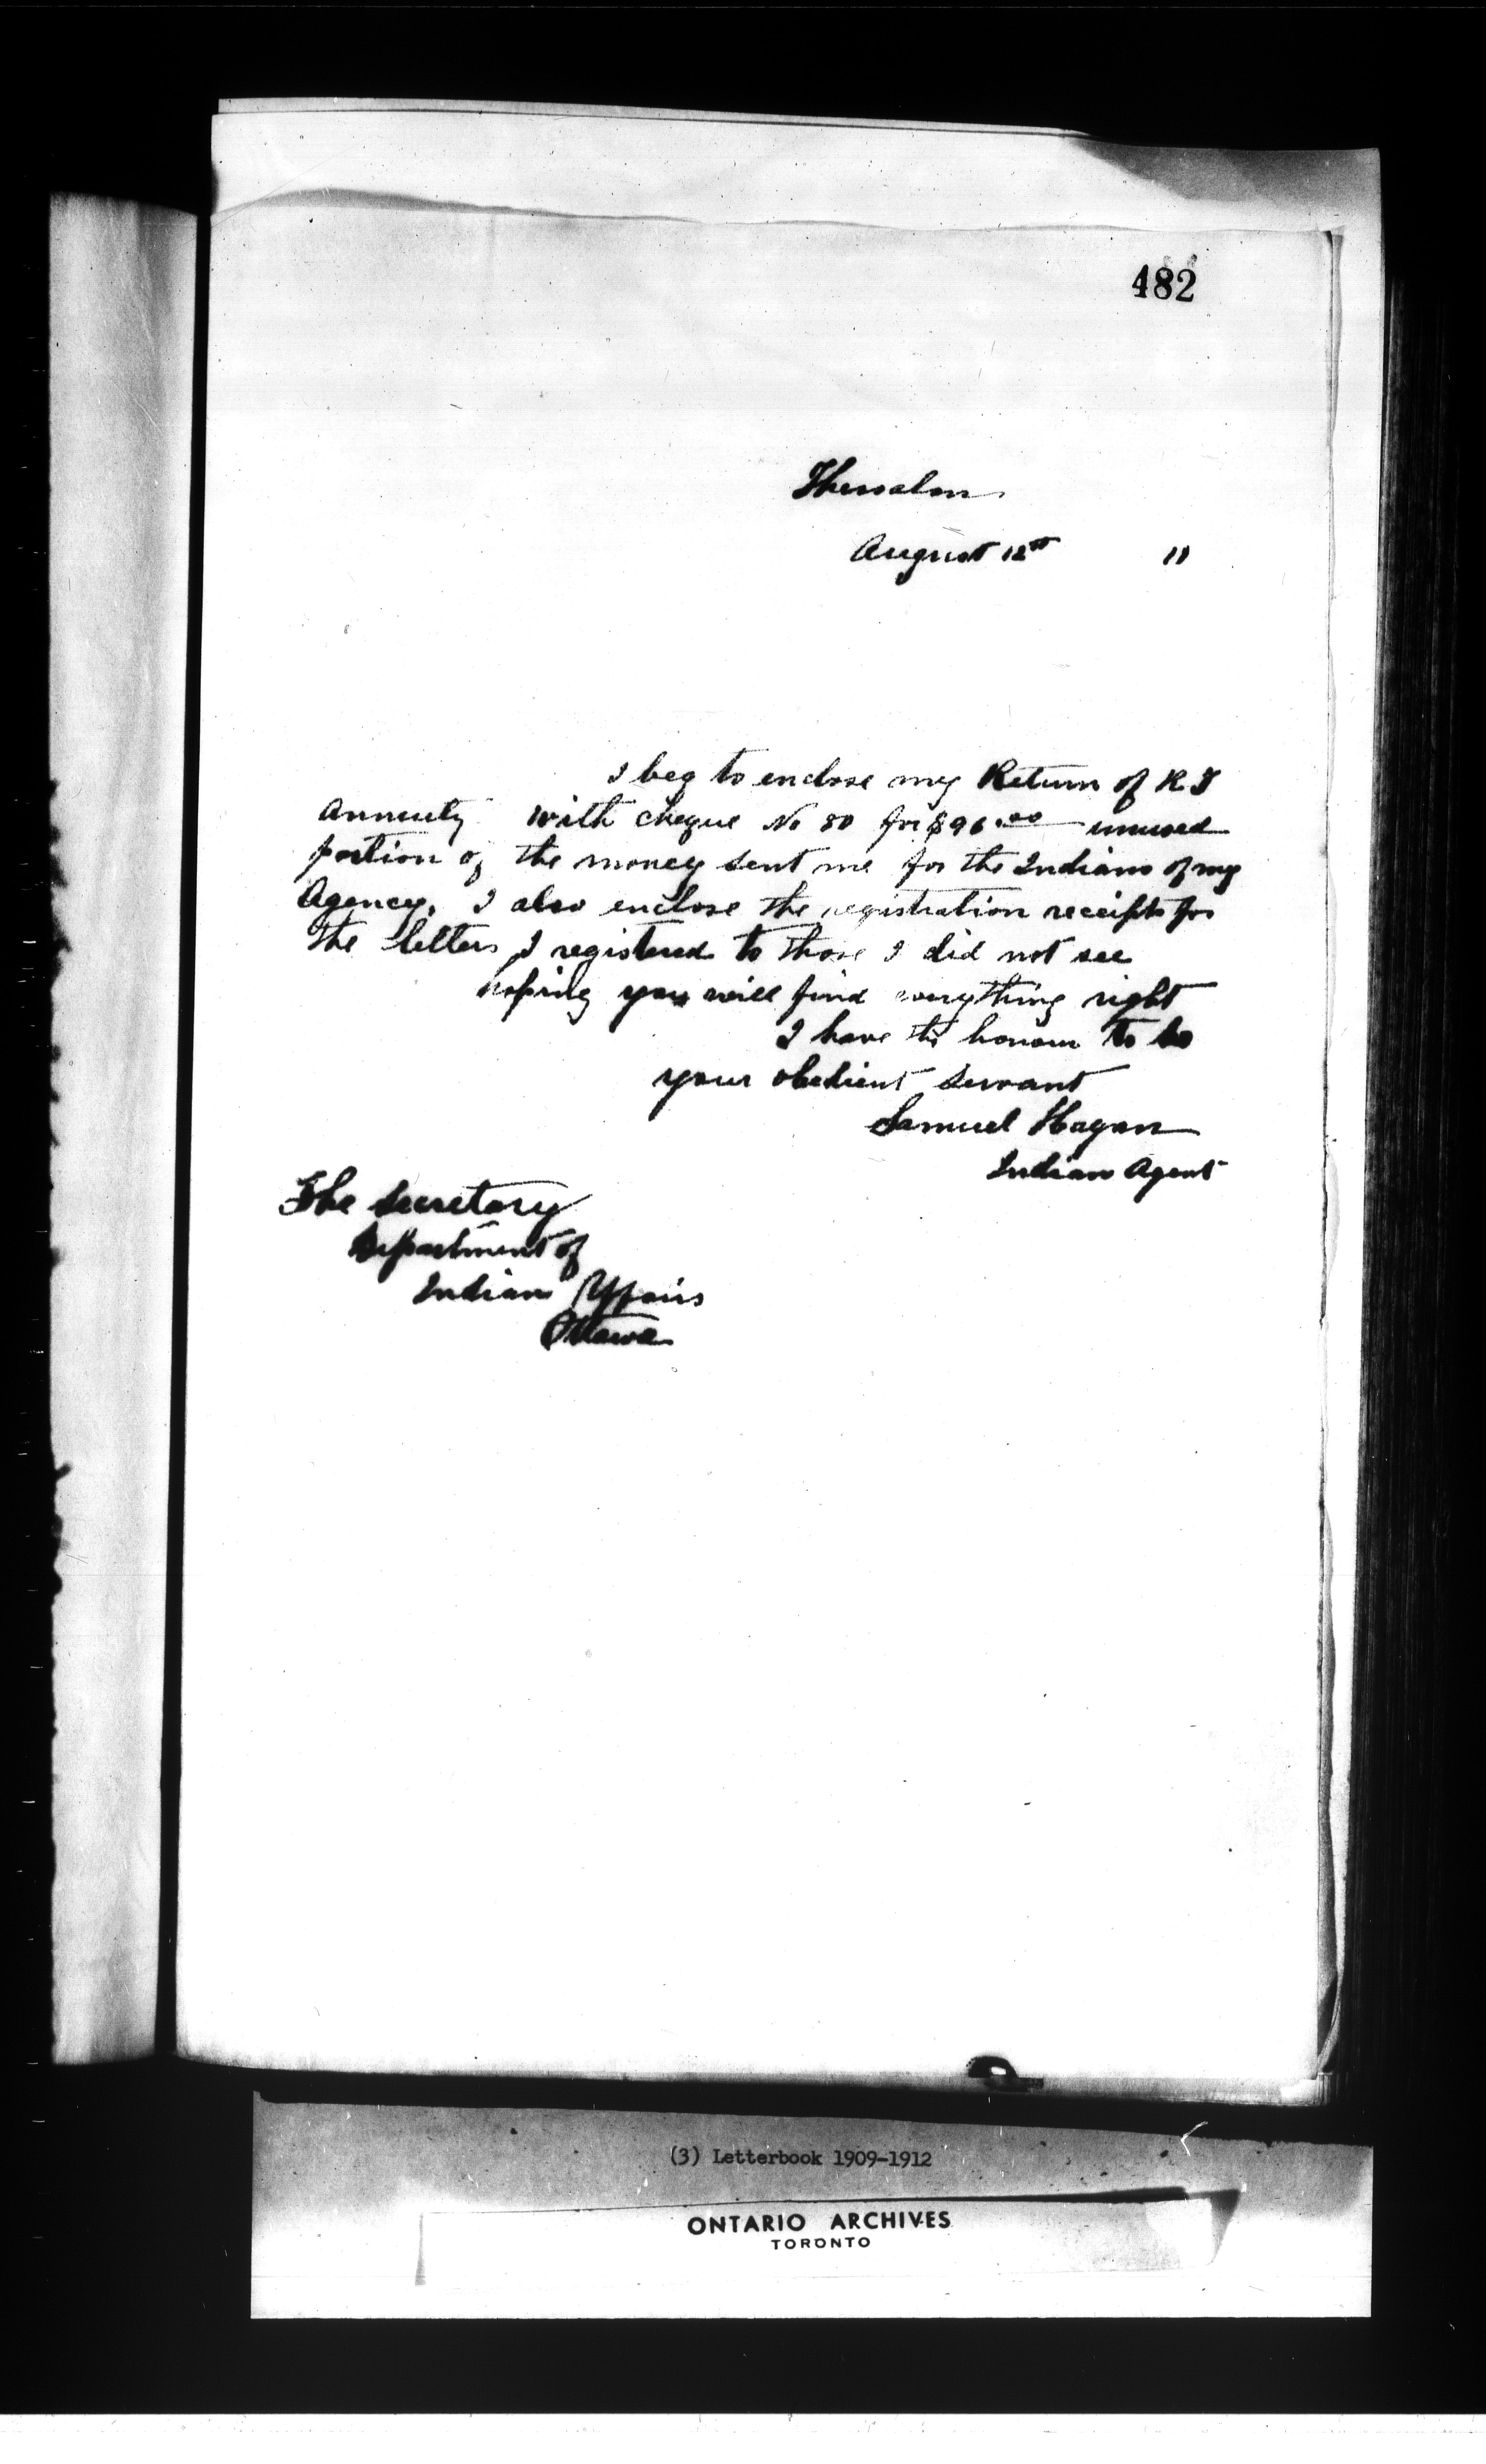 482
Thessalon
August 12th 11
I beg to enclose my Return of R T
annuity with cheque No 80 for $96.00 unused
portion of the money sent me for the Indians of my
Agency. I also enclose the registration receipts for
the letters I registered to those I did not see
hoping you will find everything right
I have the honour to be
your obedient servant
Samuel Hagan
Indian Agent
The Secretary
Department of
Indian Affairs
Ottawa
(3) Letterbook 1909-1912
ONTARIO ARCHIVES
TORONTO